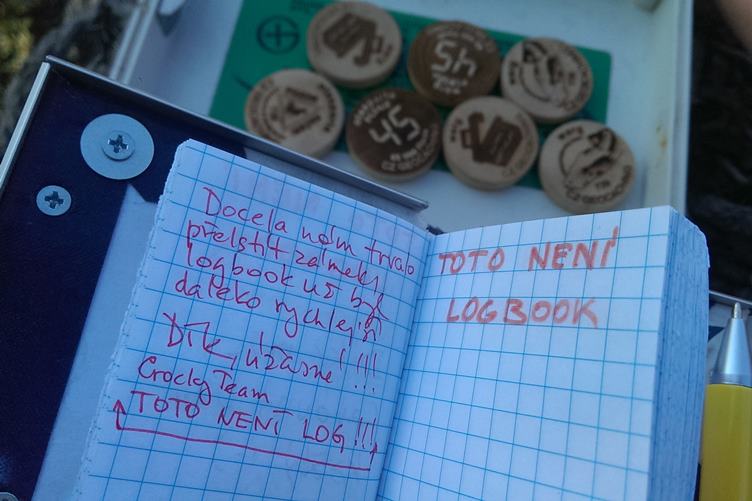 Docela nám trvalo
přelstít zámek,
logbook už byl
daleko rychlejší
Dík, úžasné! !!!
Crocky Team
TOTO NENÍ LOG!!!
TOTO NENÍ
LOGBOOK
45